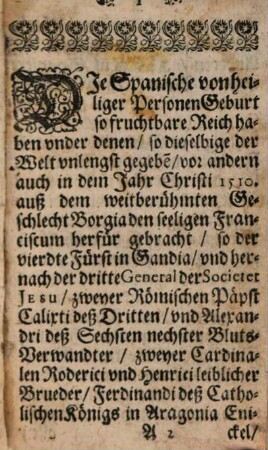 1
DIe Spanische von hei-
liger Personen Geburt
so fruchtbare Reich ha-
ben vnder denen / so dieselbige der
Welt vnlengst gegebē / vor andern
auch in dem Jahr Christi 1510.
auß dem weitberühmten Ge-
schlecht Borgia den seeligen Fran-
ciscum herfür gebracht / so der
vierdte Fürst in Gandia / vnd her-
nach der dritte General der Societet
JESU / zweyer Römischen Päpst
Calixti deß Dritten / vnd Alexan-
dri deß Sechsten nechster Bluts-
Verwandter / zweyer Cardina-
len Roderici vnd Henrici leiblicher
Brueder / Ferdinandi deß Catho-
lischen Königs in Aragonia Eni-
A 2 ckel /